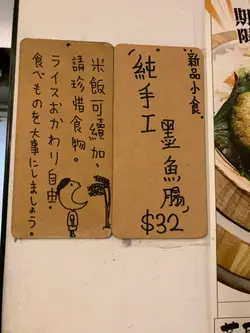 米飯可續加,
請珍惜食物。
ライスおかわり自由。
食べものを大事にしましょう。
新品小食.
純手工
墨魚腸,
$32
期